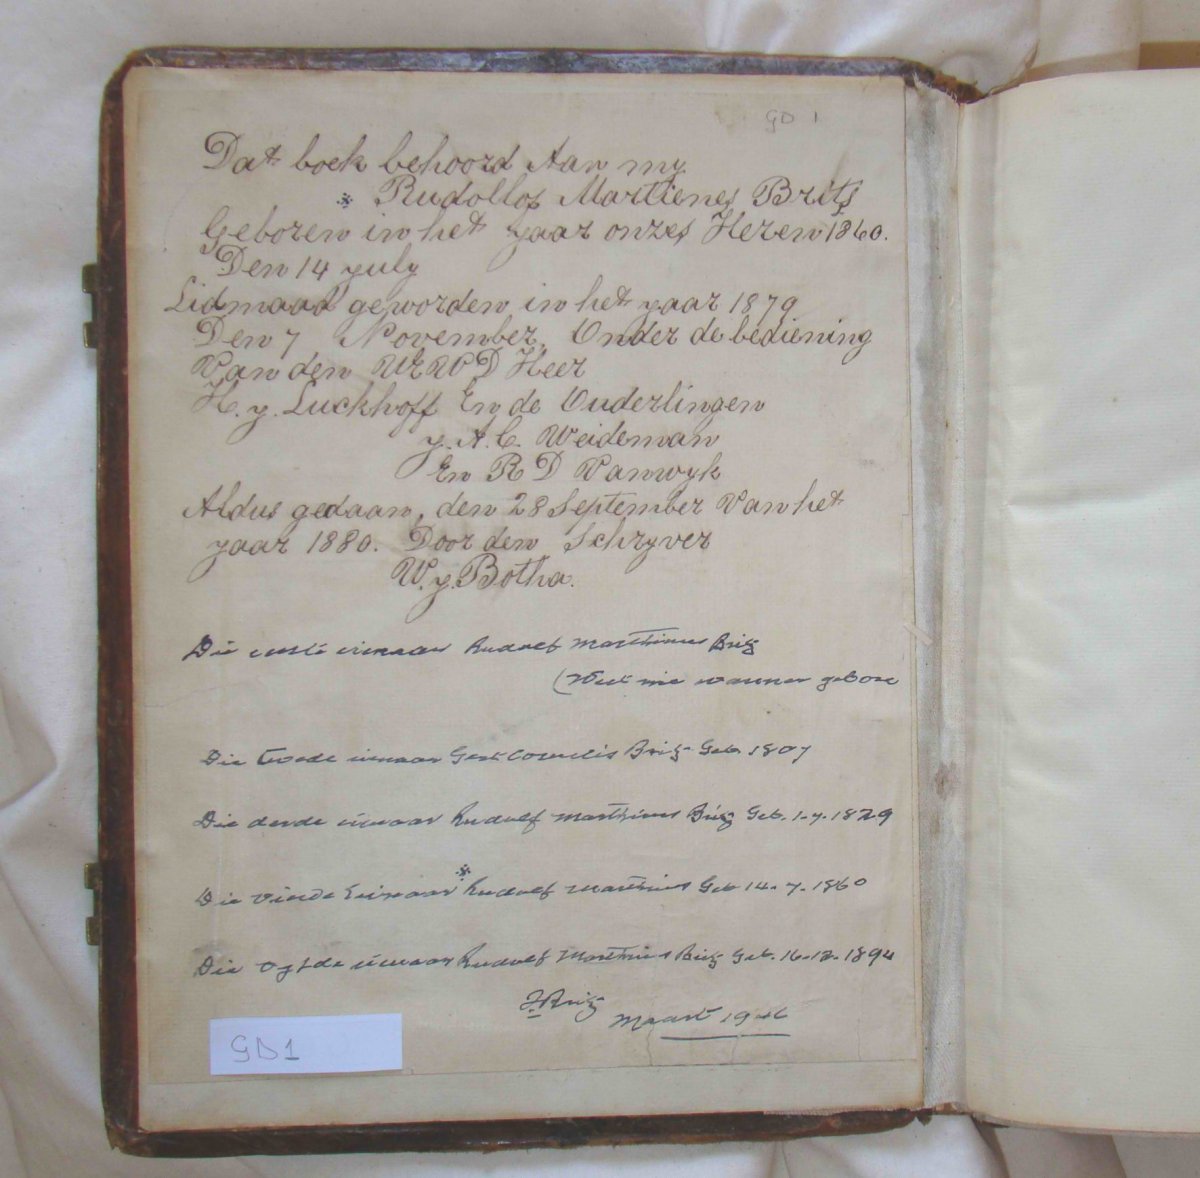 GD 1
Dat boek behoord Aan my
Rudollof Martienes Brits
Geboren in het yaar onzes Heren 1860.
Den 14 yuly
Lidmaad geworden in het yaar 1879
Den 7 November. Onder de bediening
Van den WEWD Heer
H. y. Luckhoff En de Ouderlingen
y. A. C. Weideman
En R D Vanwyk
Aldus gedaan, den 28 September Van het
yaar 1880. Door den Schryver
W. y. Botha.
Die eerste eienaar Rudolf Marthinus Britz
(Weet nie wanneer gebore
Die twede eienaar Gert Cornelis Britz Geb. 1807
Die derde eienaar Rudolf Marthinus Britz Geb. 1.7.1829
Die vierde Eienaar Rudolf Marthinus Geb 14.7.1860
Die eienaar Rudolf Marthinus Britz Geb. 16.12.1894
Britz
Maart
GD1